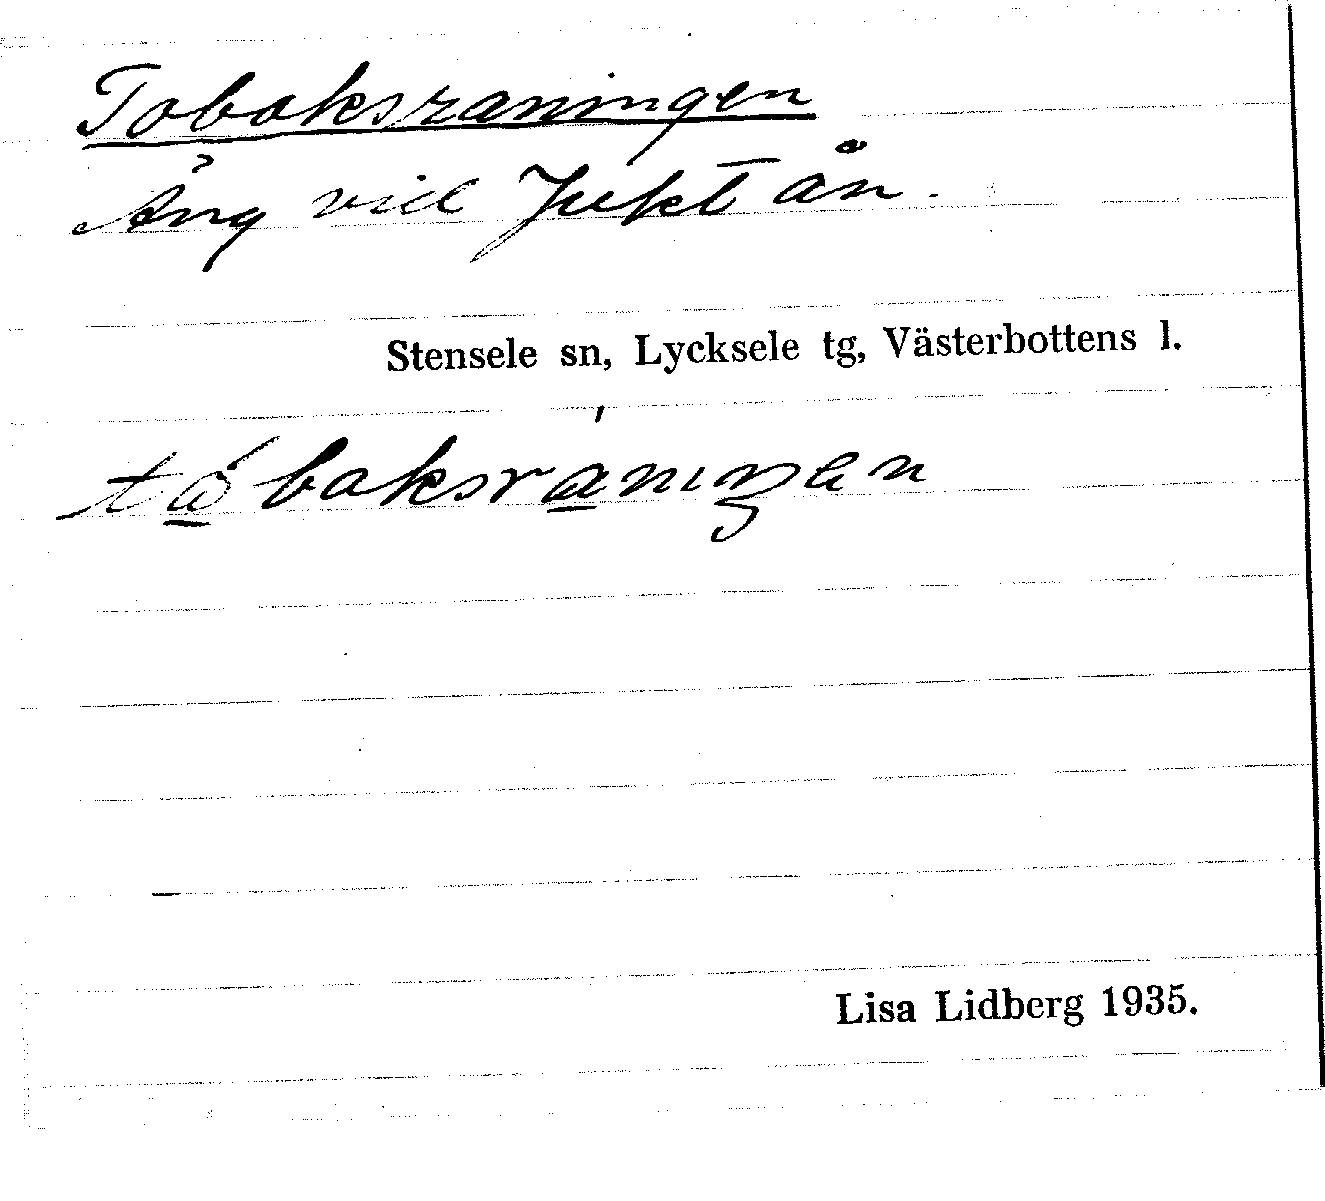 Tobaksraningen
Äng vid Juktån.
Stensele sn, Lycksele tg, Västerbottens l.
Lisa Lidberg 1935.